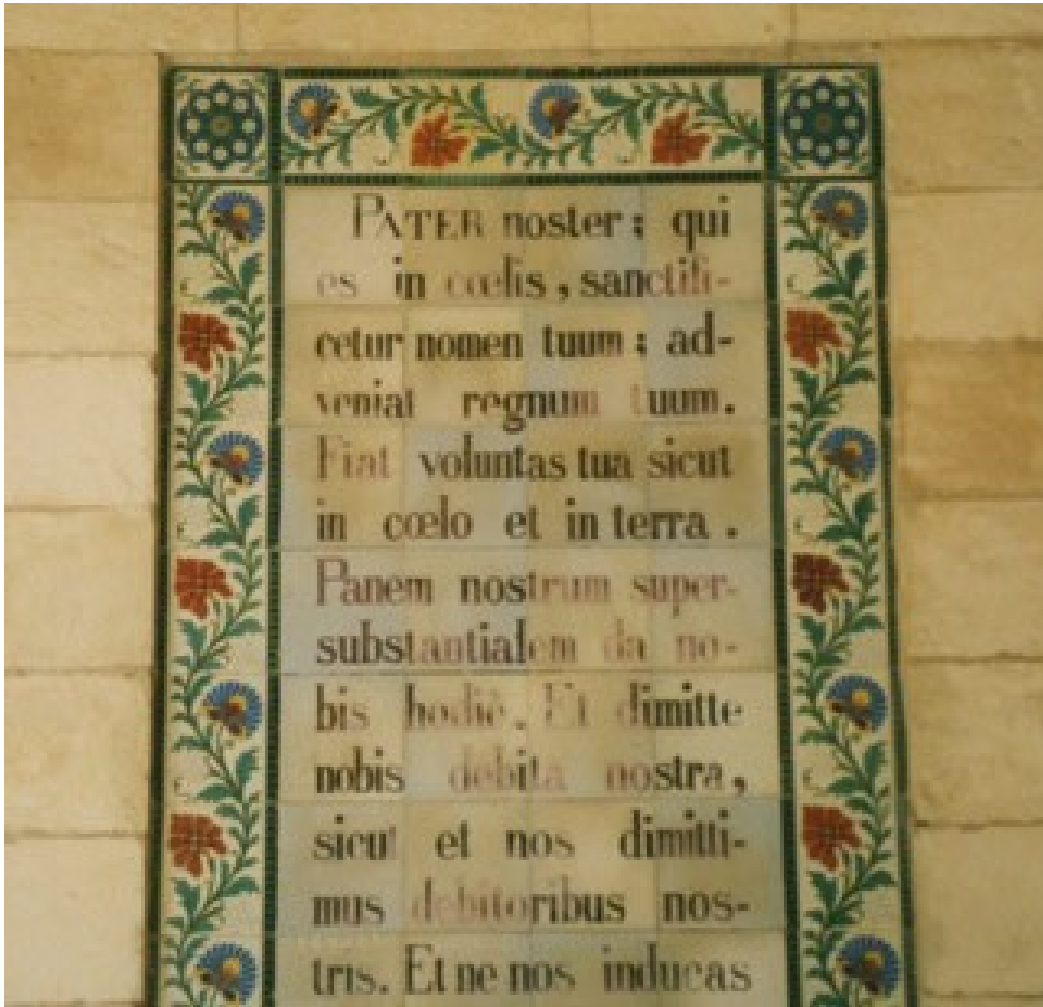 PATER noster ; qui
es in cœlis , sanctifi-
cetur nomen tuum ; ad-
veniat regnum tuum.
Fiat voluntas tua sicut
in cœlo et in terra .
Panem nostrum super-
substantialem da no-
bis hodiè. Et dimitte
nobis debita nostra,
sicut et nos dimitti-
mus debitoribus nos-
tris. Et ne nos inducas